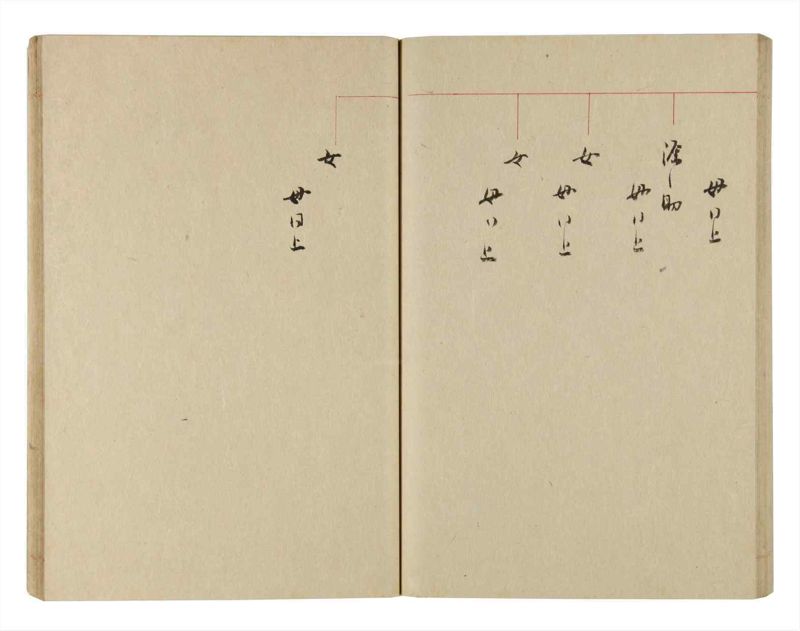 母同上
源之助
母同上
女
母同上
女
母同上
女
母同上